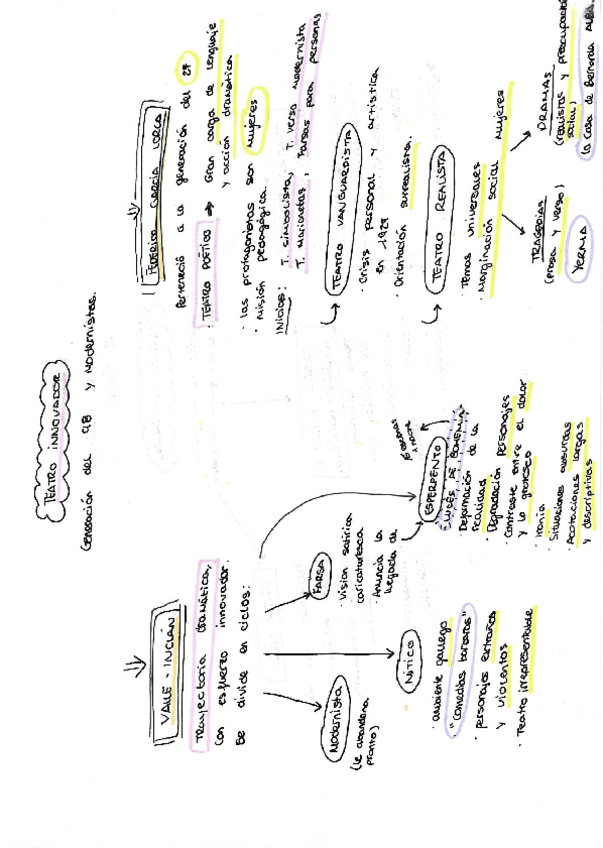 TEATRO INNOVADOR
Generación del 98 y Modernistas.
VALLE-INCLÁN
TRAYECTORIA DRAMÁTICA.
Con esfuerzo innovador.
Se divide en ciclos:
Modernista
(le abandona
pronto)
MÍTICO
· ambiente gallego
· "Comedias bárbaras"
· personajes extraños
y violentos
· Teatro irrepresentable
FARSA
· Visión satírica
caricaturesca
· Anuncia la
llegada de
ESPERPENTO
15 escenas
1 noche
LUCES DE BOHEMIA
· Deformación de la
realidad
· Degradación personajes
· Contraste entre el dolor
y lo grotesco
· Ironía
· Situaciones absurdas
· Acotaciones largas
y descriptivas
FEDERICO GARCÍA LORCA
Perteneció a la generación del 27
· TEATRO POÉTICO → Gran carga de lenguaje
y acción dramática
· Las protagonistas son mujeres
· Misión pedagógica.
INICIOS: T. simbolista, T. verso modernista
T. Marionetas, Farsas para personas
TEATRO VANGUARDISTA
· Crisis personal y artística
en 1929
· Orientación surrealista.
TEATRO REALISTA
· Temas universales
· Marginación social mujeres
TRAGEDIAS
(prosa y verso)
YERMA
DRAMAS
(realistas y
social)
La casa de Bernarda Alba.